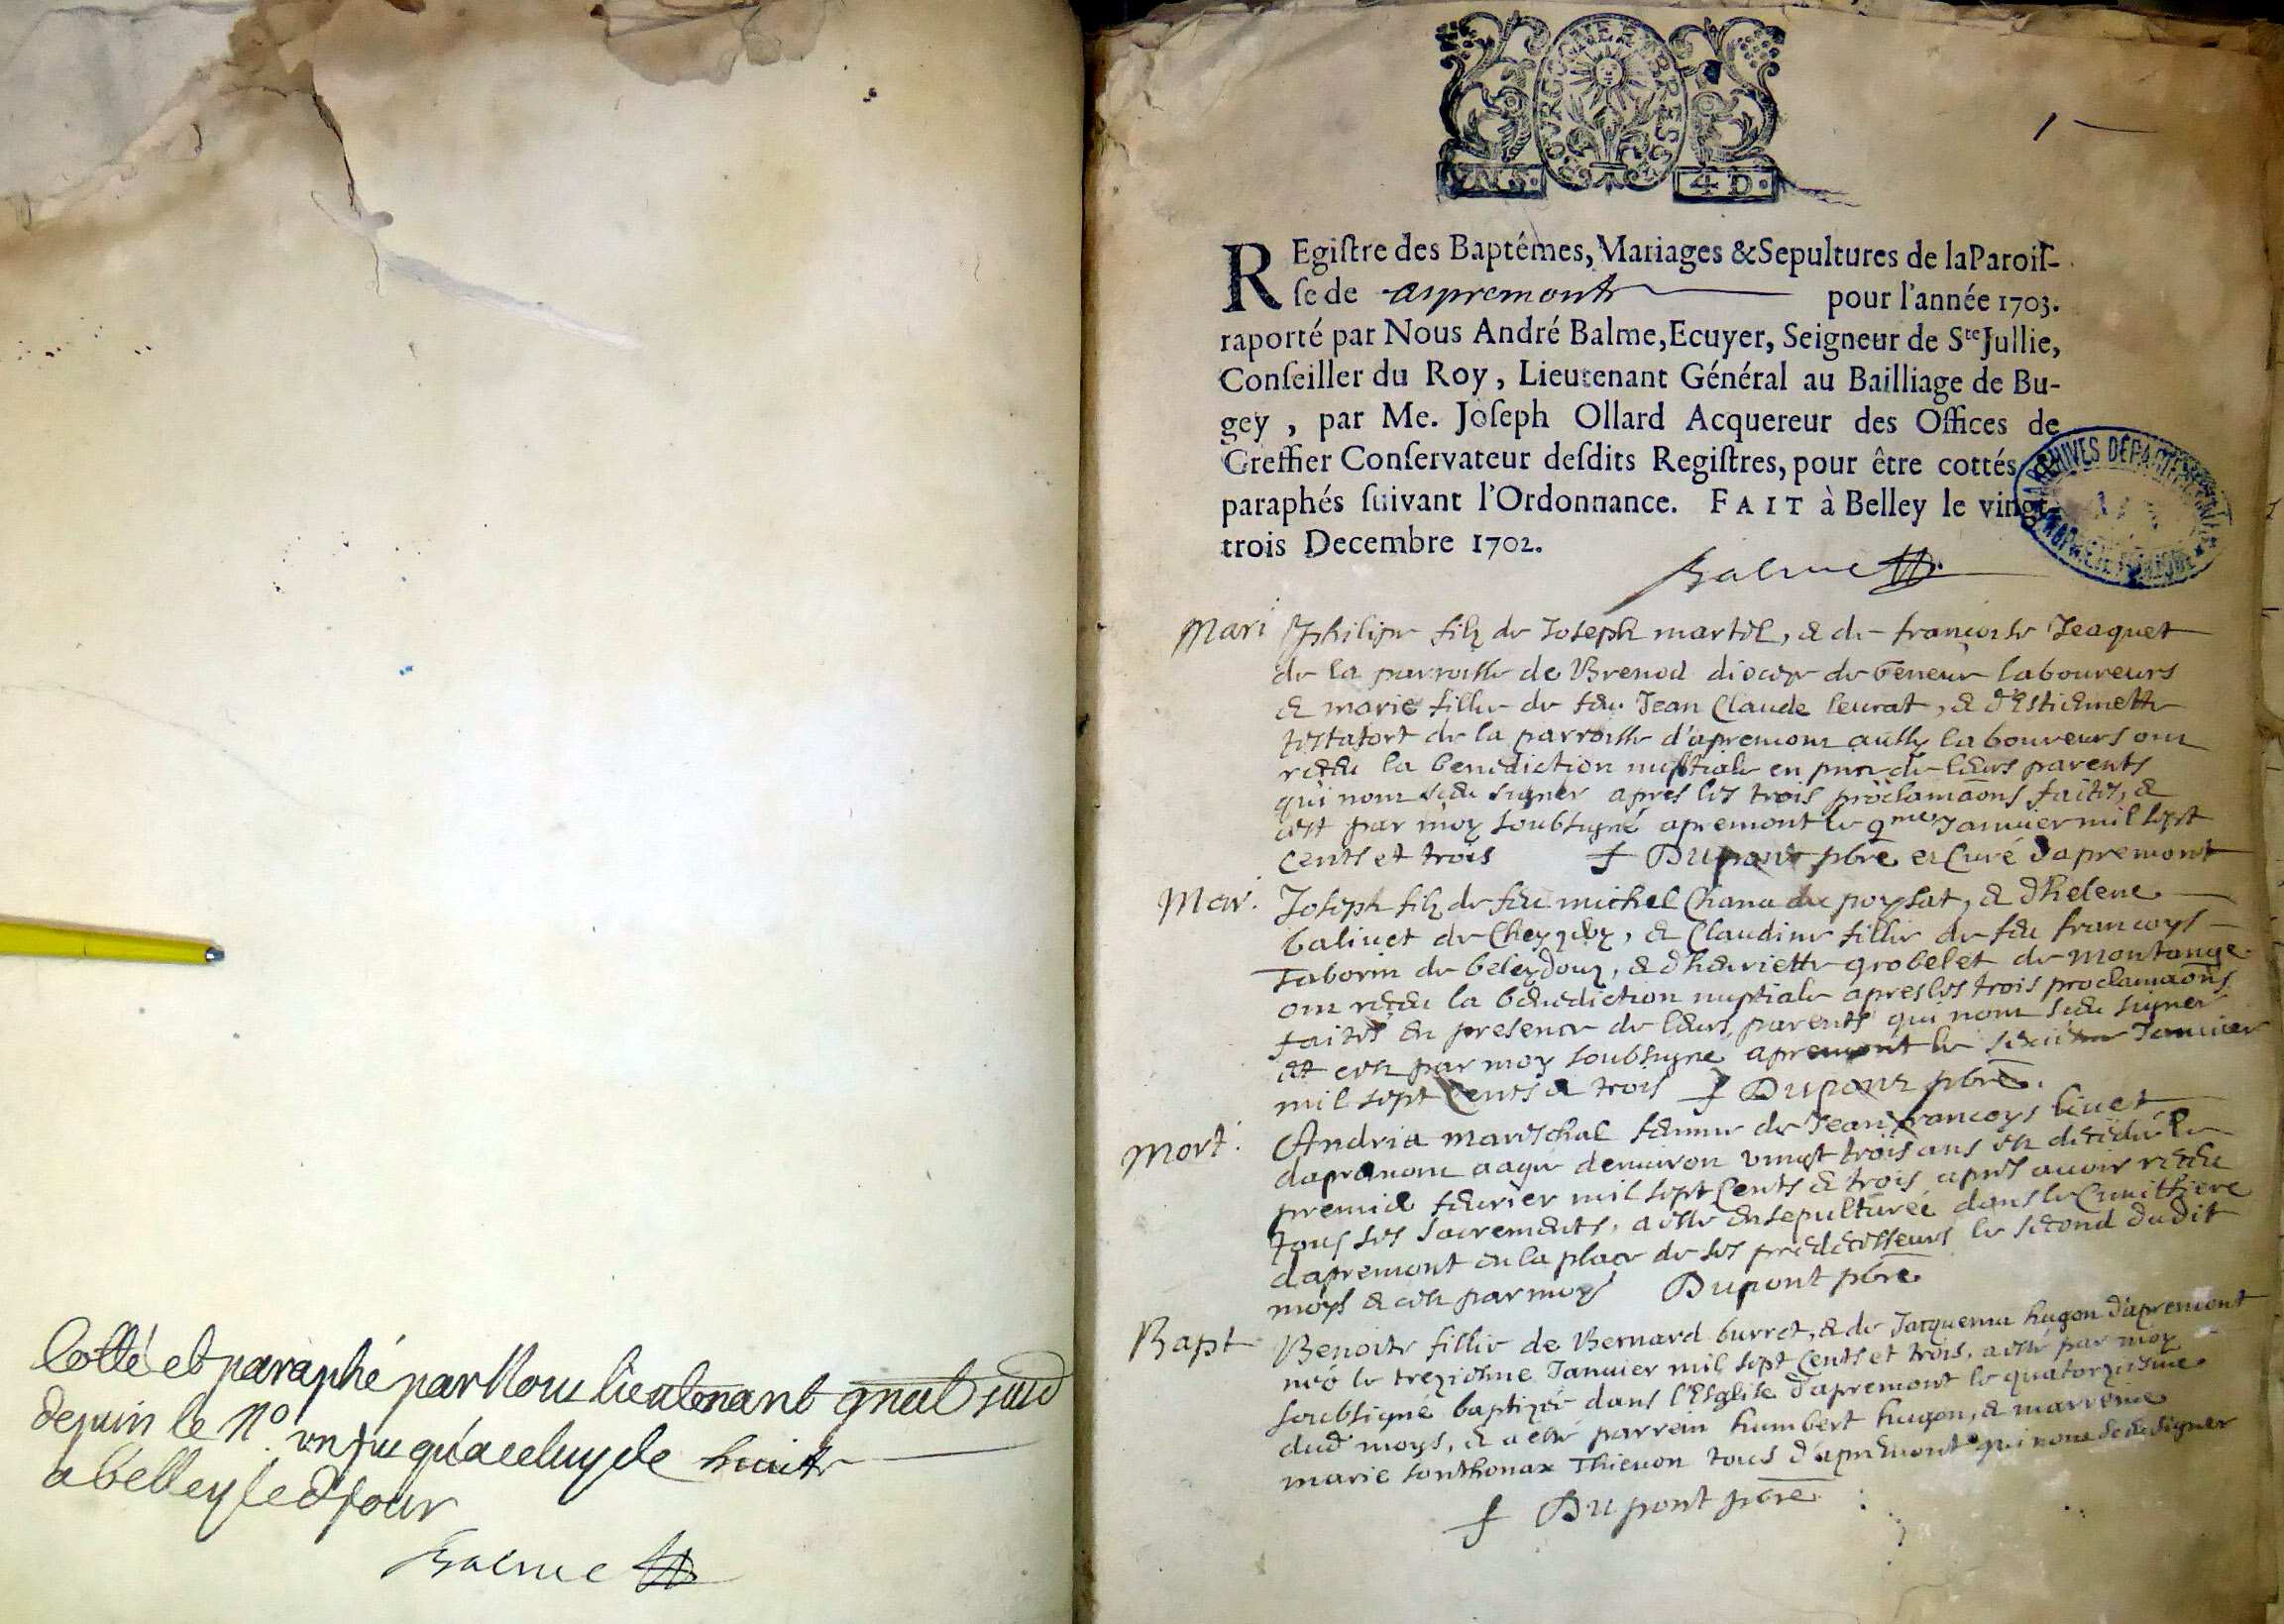 Cotté et paraphé par Nous lieutenant gnal susd
depuis le N.º un jusqu'a celuy de huit
a belley led jour
Balme
BOURGOGNE ET BRESSE
4 D.
1
REgiſtre des Baptémes, Mariages & Sepultures de la Paroiſ-
ſe de aspremont pour l'année 1703.
raporté par Nous André Balme, Ecuyer, Seigneur de Ste Jullie,
Conſeiller du Roy, Lieutenant Général au Bailliage de Bu-
gey, par Me. Joſeph Ollard Acquereur des Offices de
Greffier Conſervateur deſdits Regiſtres, pour être cottés
paraphés ſuivant l'Ordonnance. FAIT à Belley le vingt-
trois Decembre 1702.
ARCHIVES DÉPARTEMENTALES
PROPRIÉTÉ PUBLIQUE
Balme
Mari Philipe filz de Joseph martel, & de francoise Jeaquet
de la parroisse de Brenod diocese de Geneve laboureurs
& marie fille de feu Jean Claude leurat, & d'Estiennette
de la parroisse d'apremont aussy laboureurs ont
receu la benediction nuptiale en pnce de leurs parents
qui nont sceu signer apres les trois proclamaons faites, &
cest par moy soubsigné apremont le 9me Janvier mil sept
cents et trois f Dupont pbre et Curé dapremont
Mar. Joseph filz de feu michel Chana de poysat, & dhelene
balivet de Cheyzery, & Claudine fille de feu francoys
Taborin de beleydoux, & dhenriette grobelet de montange
ont receu la benediction nuptiale apres les trois proclamaons
faites en presence de leurs parents qui nont sceu signer
et cest par moy soubsigné apremont le Janvier
mil sept Cents & trois f Dupont pbre.
Mort. Andria mareschal femme de Jean francoys livet
dapremont aagée denviron vingt trois ans est decedée le
premier fevrier mil sept Cents & trois apres avoir receu
tous ses sacrements, a esté ensepulturée dans le Cimithiere
dapremont en la place de ses predecesseurs le second dudit
moys & cest par moy Dupont pbre
Bapt Benoite fille de Bernard burret, & de Jacquema hugon d'apremont
née le trezieme Janvier mil sept Cents et trois, a esté par moy
soubsigné baptizée dans l'Esglise d'apremont le quatorzieme
dud moys, & a esté parrein humbert hugon, & marreine
marie sonthonax Thievon tous d'apremont qui nont sceu signer
f Dupont pbre